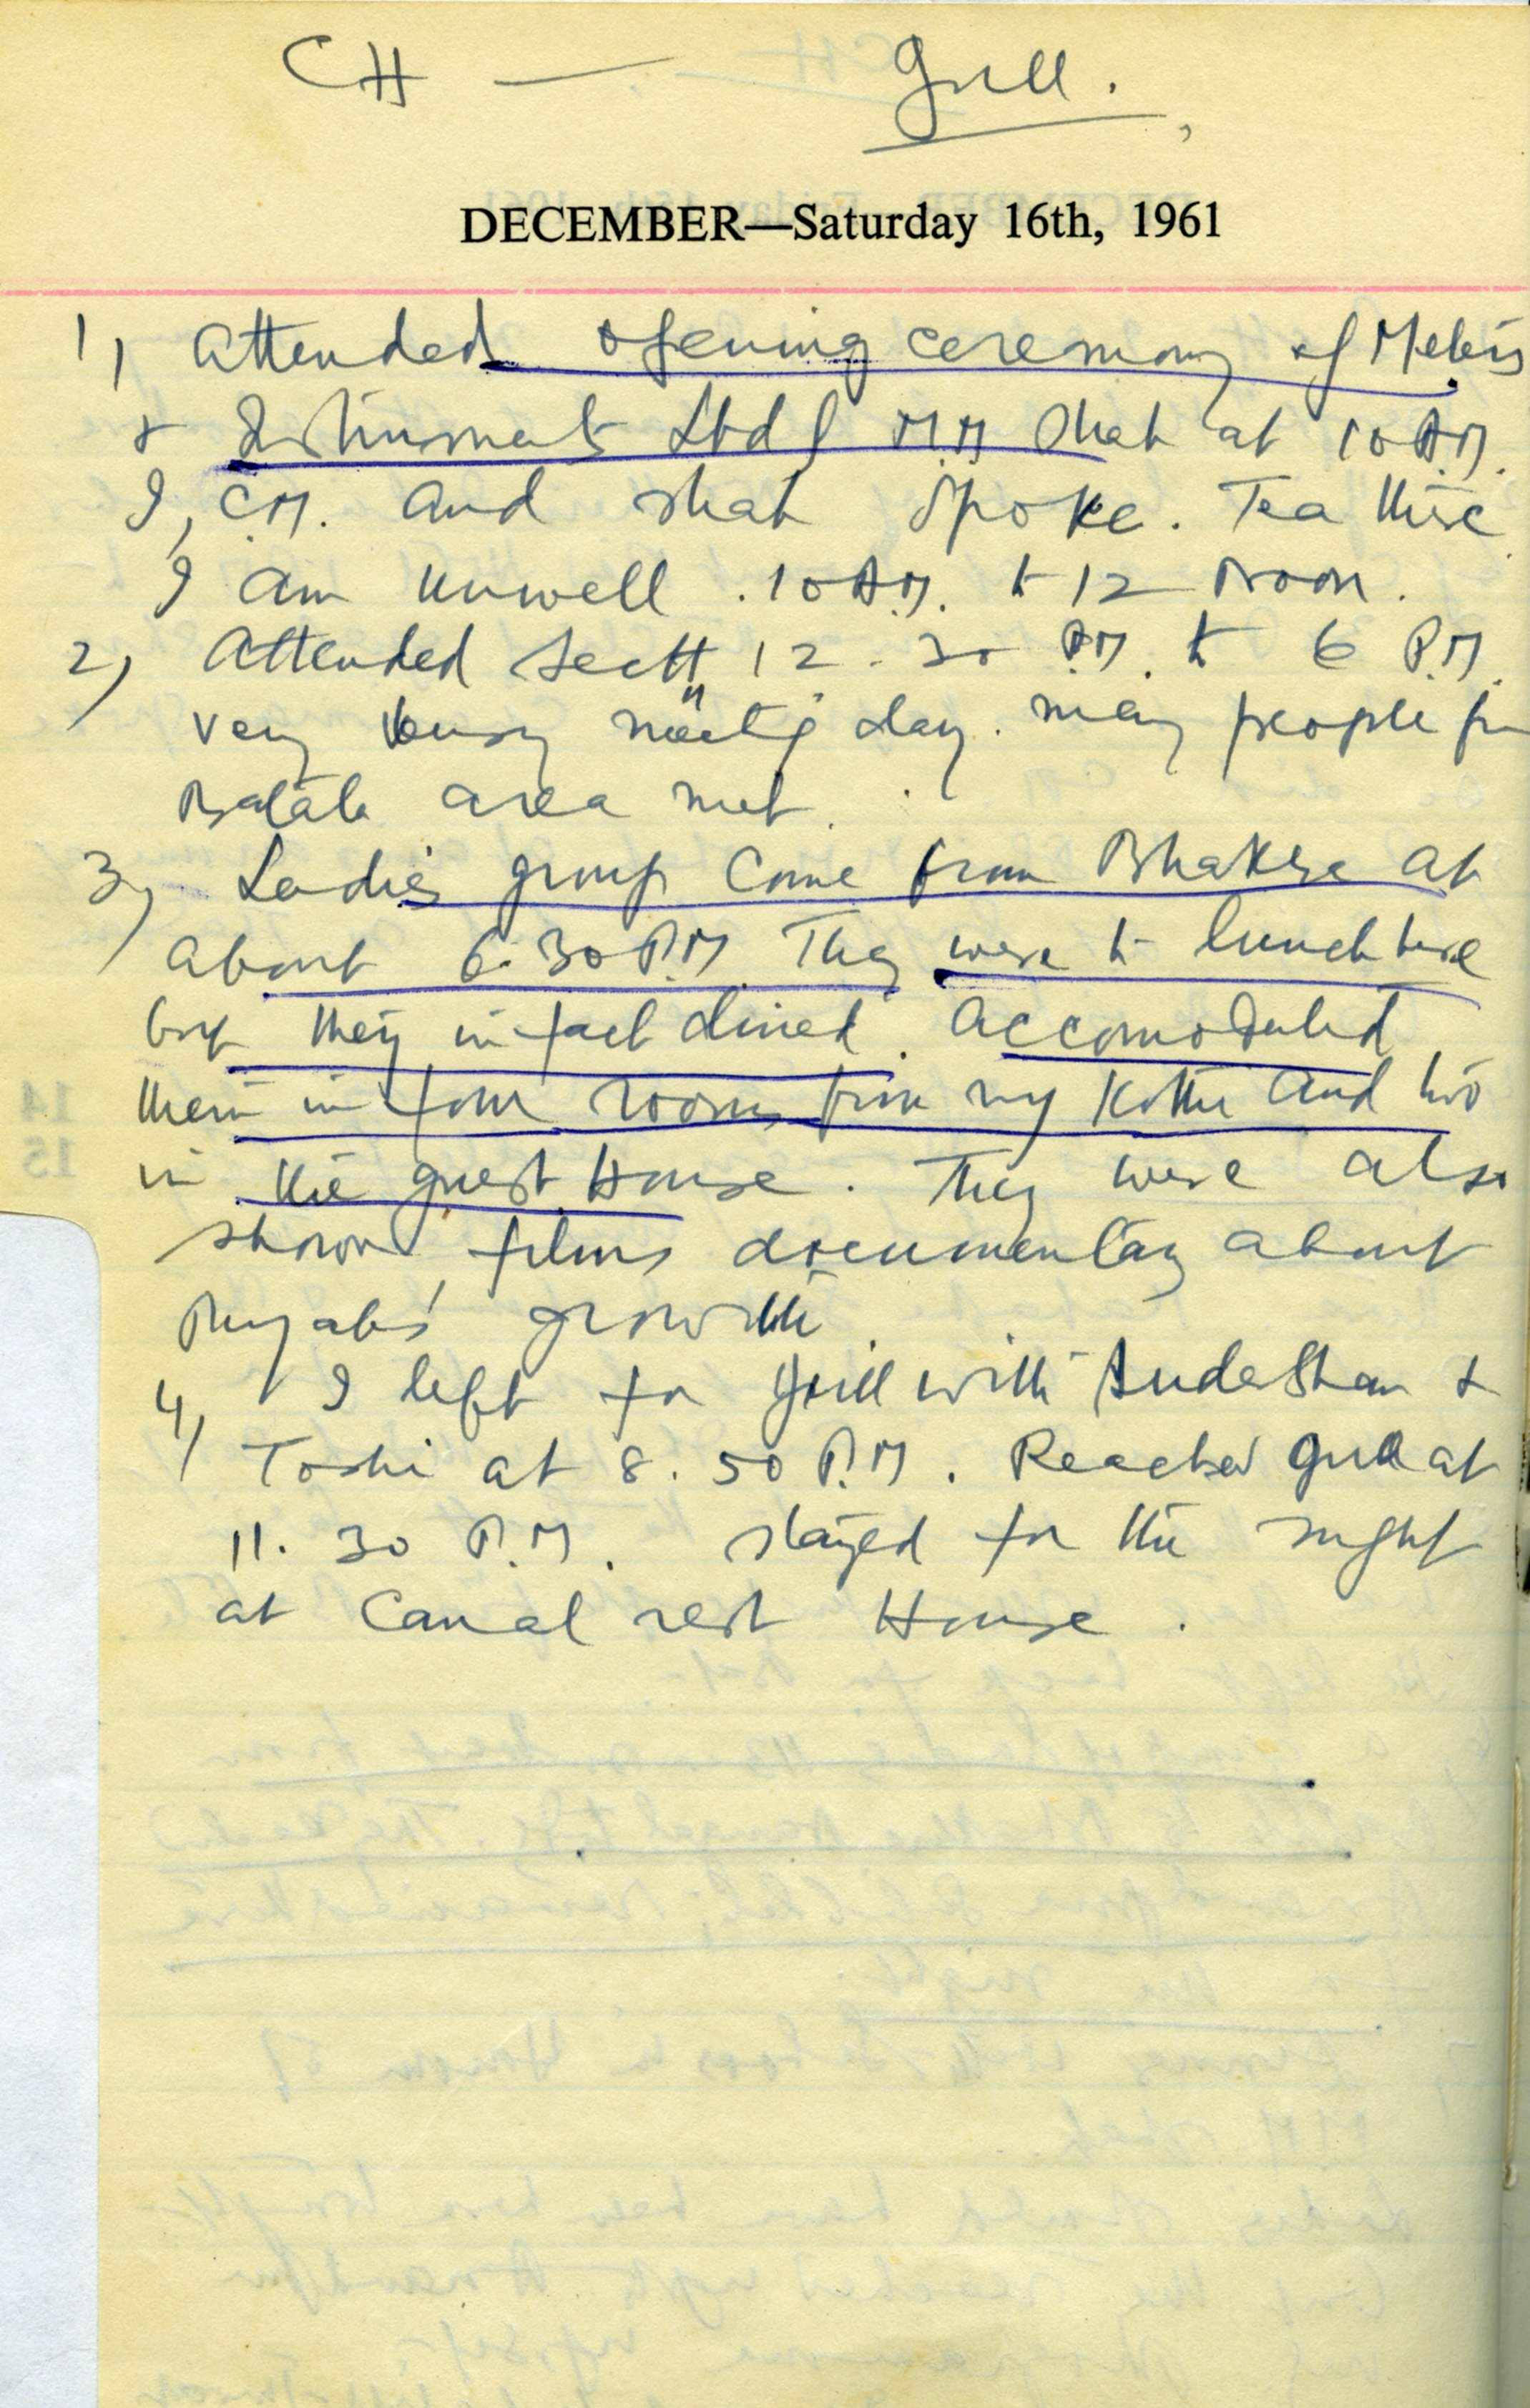 CH — Gill.
DECEMBER—Saturday 16th, 1961
1) Attended opening ceremony of Meters
& Instruments Ltd of M.M Shah at 10 A.M.
I, C.M. and Shah spoke. Tea there
I am unwell. 10 A.M. to 12 Noon.
2) Attended Sectt 12.30 P.M. to 6 P.M.
very busy day. many people from
Batala area met.
3) Ladies group come from Bhakra at
about 6.30 P.M They were to lunch here
but they in fact dined. Accomodated
them in four rooms from my Kothi and two
in the guest House. They were also
shown films documentary about
Punjab's growth
4) I left for Gill with Sudershan &
Toshi at 8.50 P.M. Reached Gill at
11.30 P.M. stayed for the night
at Canal rest House.